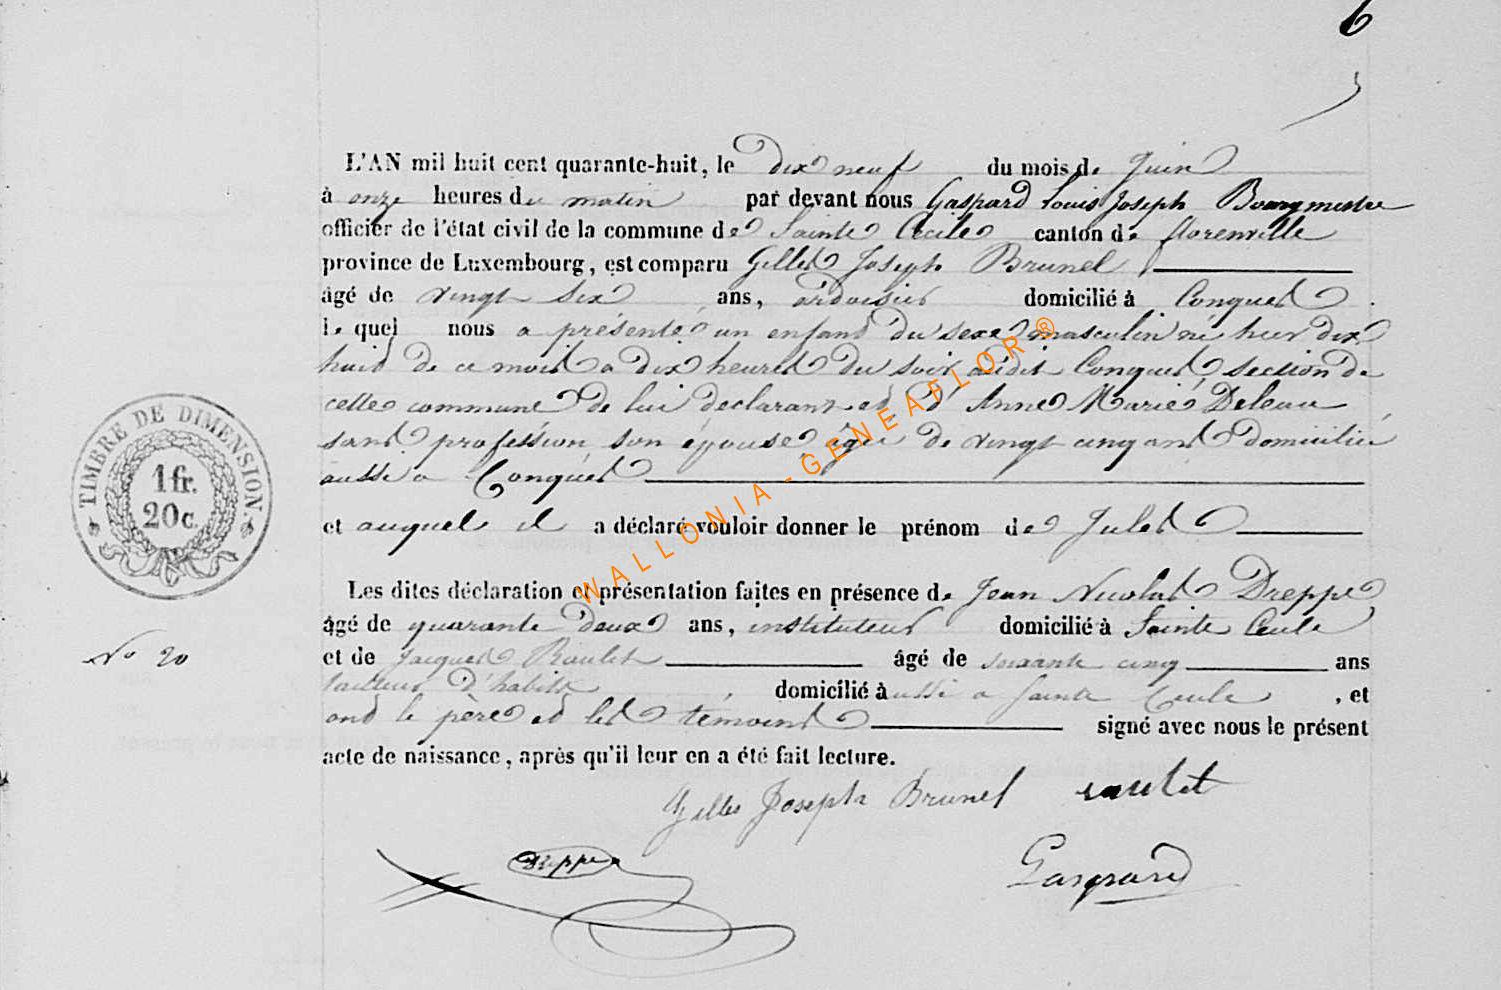 6
L'AN mil huit cent quarante-huit, le dix neuf du mois de Juin
à onze heures du matin par devant nous Gaspard Louis Joseph Bourgmestre
officier de l'état civil de la commune de Sainte Cécile canton de florenville
province de Luxembourg, est comparu Gilles Joseph Brunel
âgé de vingt six ans, ardoisier domicilié à Conques
le quel nous a présenté un enfant du sexe masculin né hier dix
huit de ce mois a dix heures du soir audit Conques section de
cette commune de lui declarant et d'Anne Marie Deleau
sans profession son épouse âgée de vingt cinq ans domiciliée
aussi a Conques
et auquel il a déclaré vouloir donner le prénom de Jules
Les dites déclaration et présentation faites en présence de Jean Nicolas Dreppe
âgé de quarante deux ans, instituteur domicilié à Sainte Cecile
et de Jacques Raulet âgé de soixante cinq ans
tailleur d'habits domicilié à aussi a Sainte Cecile, et
ont le père et les témoins signé avec nous le présent
acte de naissance, après qu'il leur en a été fait lecture.
Gilles Joseph Brunel raulet
Dreppe Gaspard
TIMBRE DE DIMENSION.
1 fr.
20 c.
No 20
WALLONIA - GENEAFLOR ®